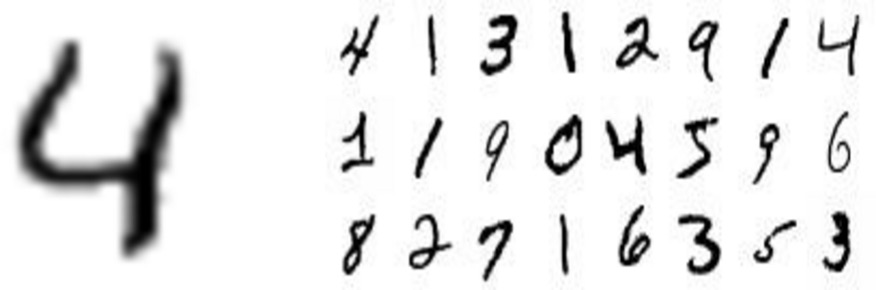 4
4 1 3 1 2 9 1 4
1 1 9 0 4 5 9 6
8 2 7 1 6 3 5 3